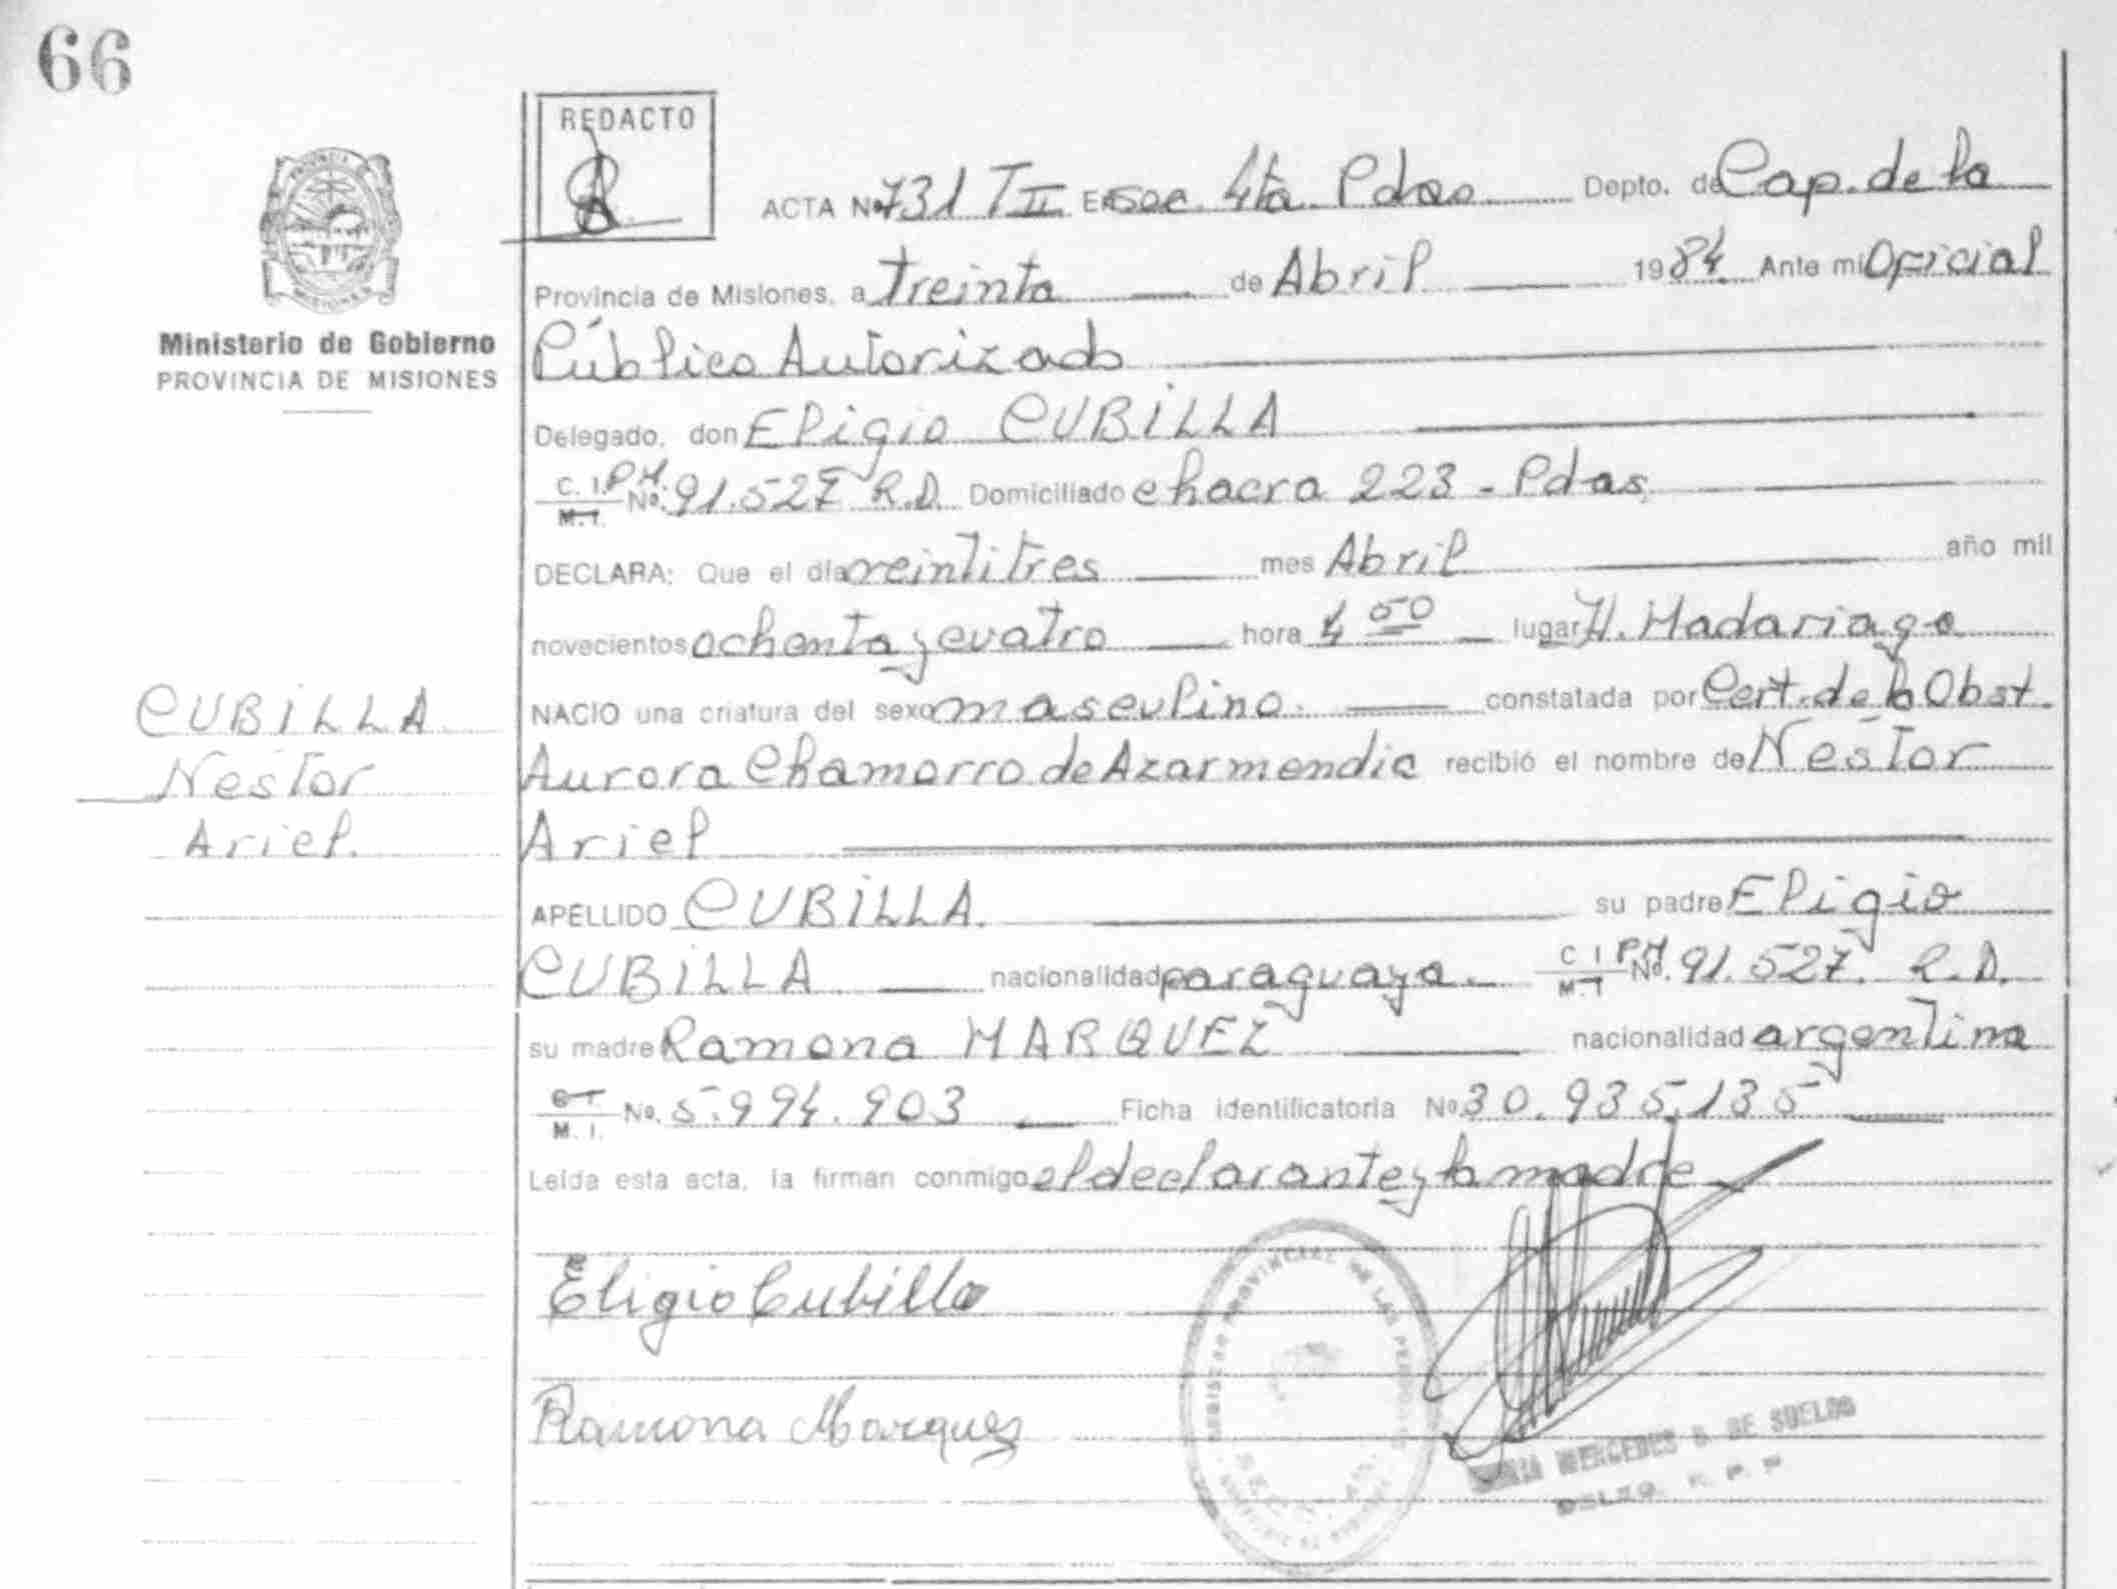 66
REDACTO
ACTA Nº 731 T II En Sec. 4ta. Pdas Depto. de Cap. de la
Provincia de Misiones, a treinta de Abril 1984. Ante mi Oficial
Público Autorizado
Ministerio de Gobierno
PROVINCIA DE MISIONES
Delegado, don Eligio CUBILLA
C. I. P.M. M. I. No. 91.527 R.D. Domiciliado chacra 223 - Pdas.
DECLARA: Que el día veintitres mes Abril año mil
novecientos ochenta y cuatro hora 4 50 lugar H. Madariaga
NACIO una criatura del sexo masculino. constatada por Cert. de la Obst.
Aurora Chamorro de Azarmendia recibió el nombre de Nestor
Ariel
CUBILLA
Nestor
Ariel.
APELLIDO CUBILLA. su padre Eligio
CUBILLA nacionalidad paraguaya. C I P.M. M. I No. 91.527. R.D.
su madre Ramona MARQUEZ nacionalidad argentina
C. I. M. I. No. 5.994.903 Ficha identificatoria No 30.935.135
Leída esta acta, la firman conmigo el declarante y la madre
Eligio Cubilla
Ramona Marques
MERCEDES B. DE SUELDO